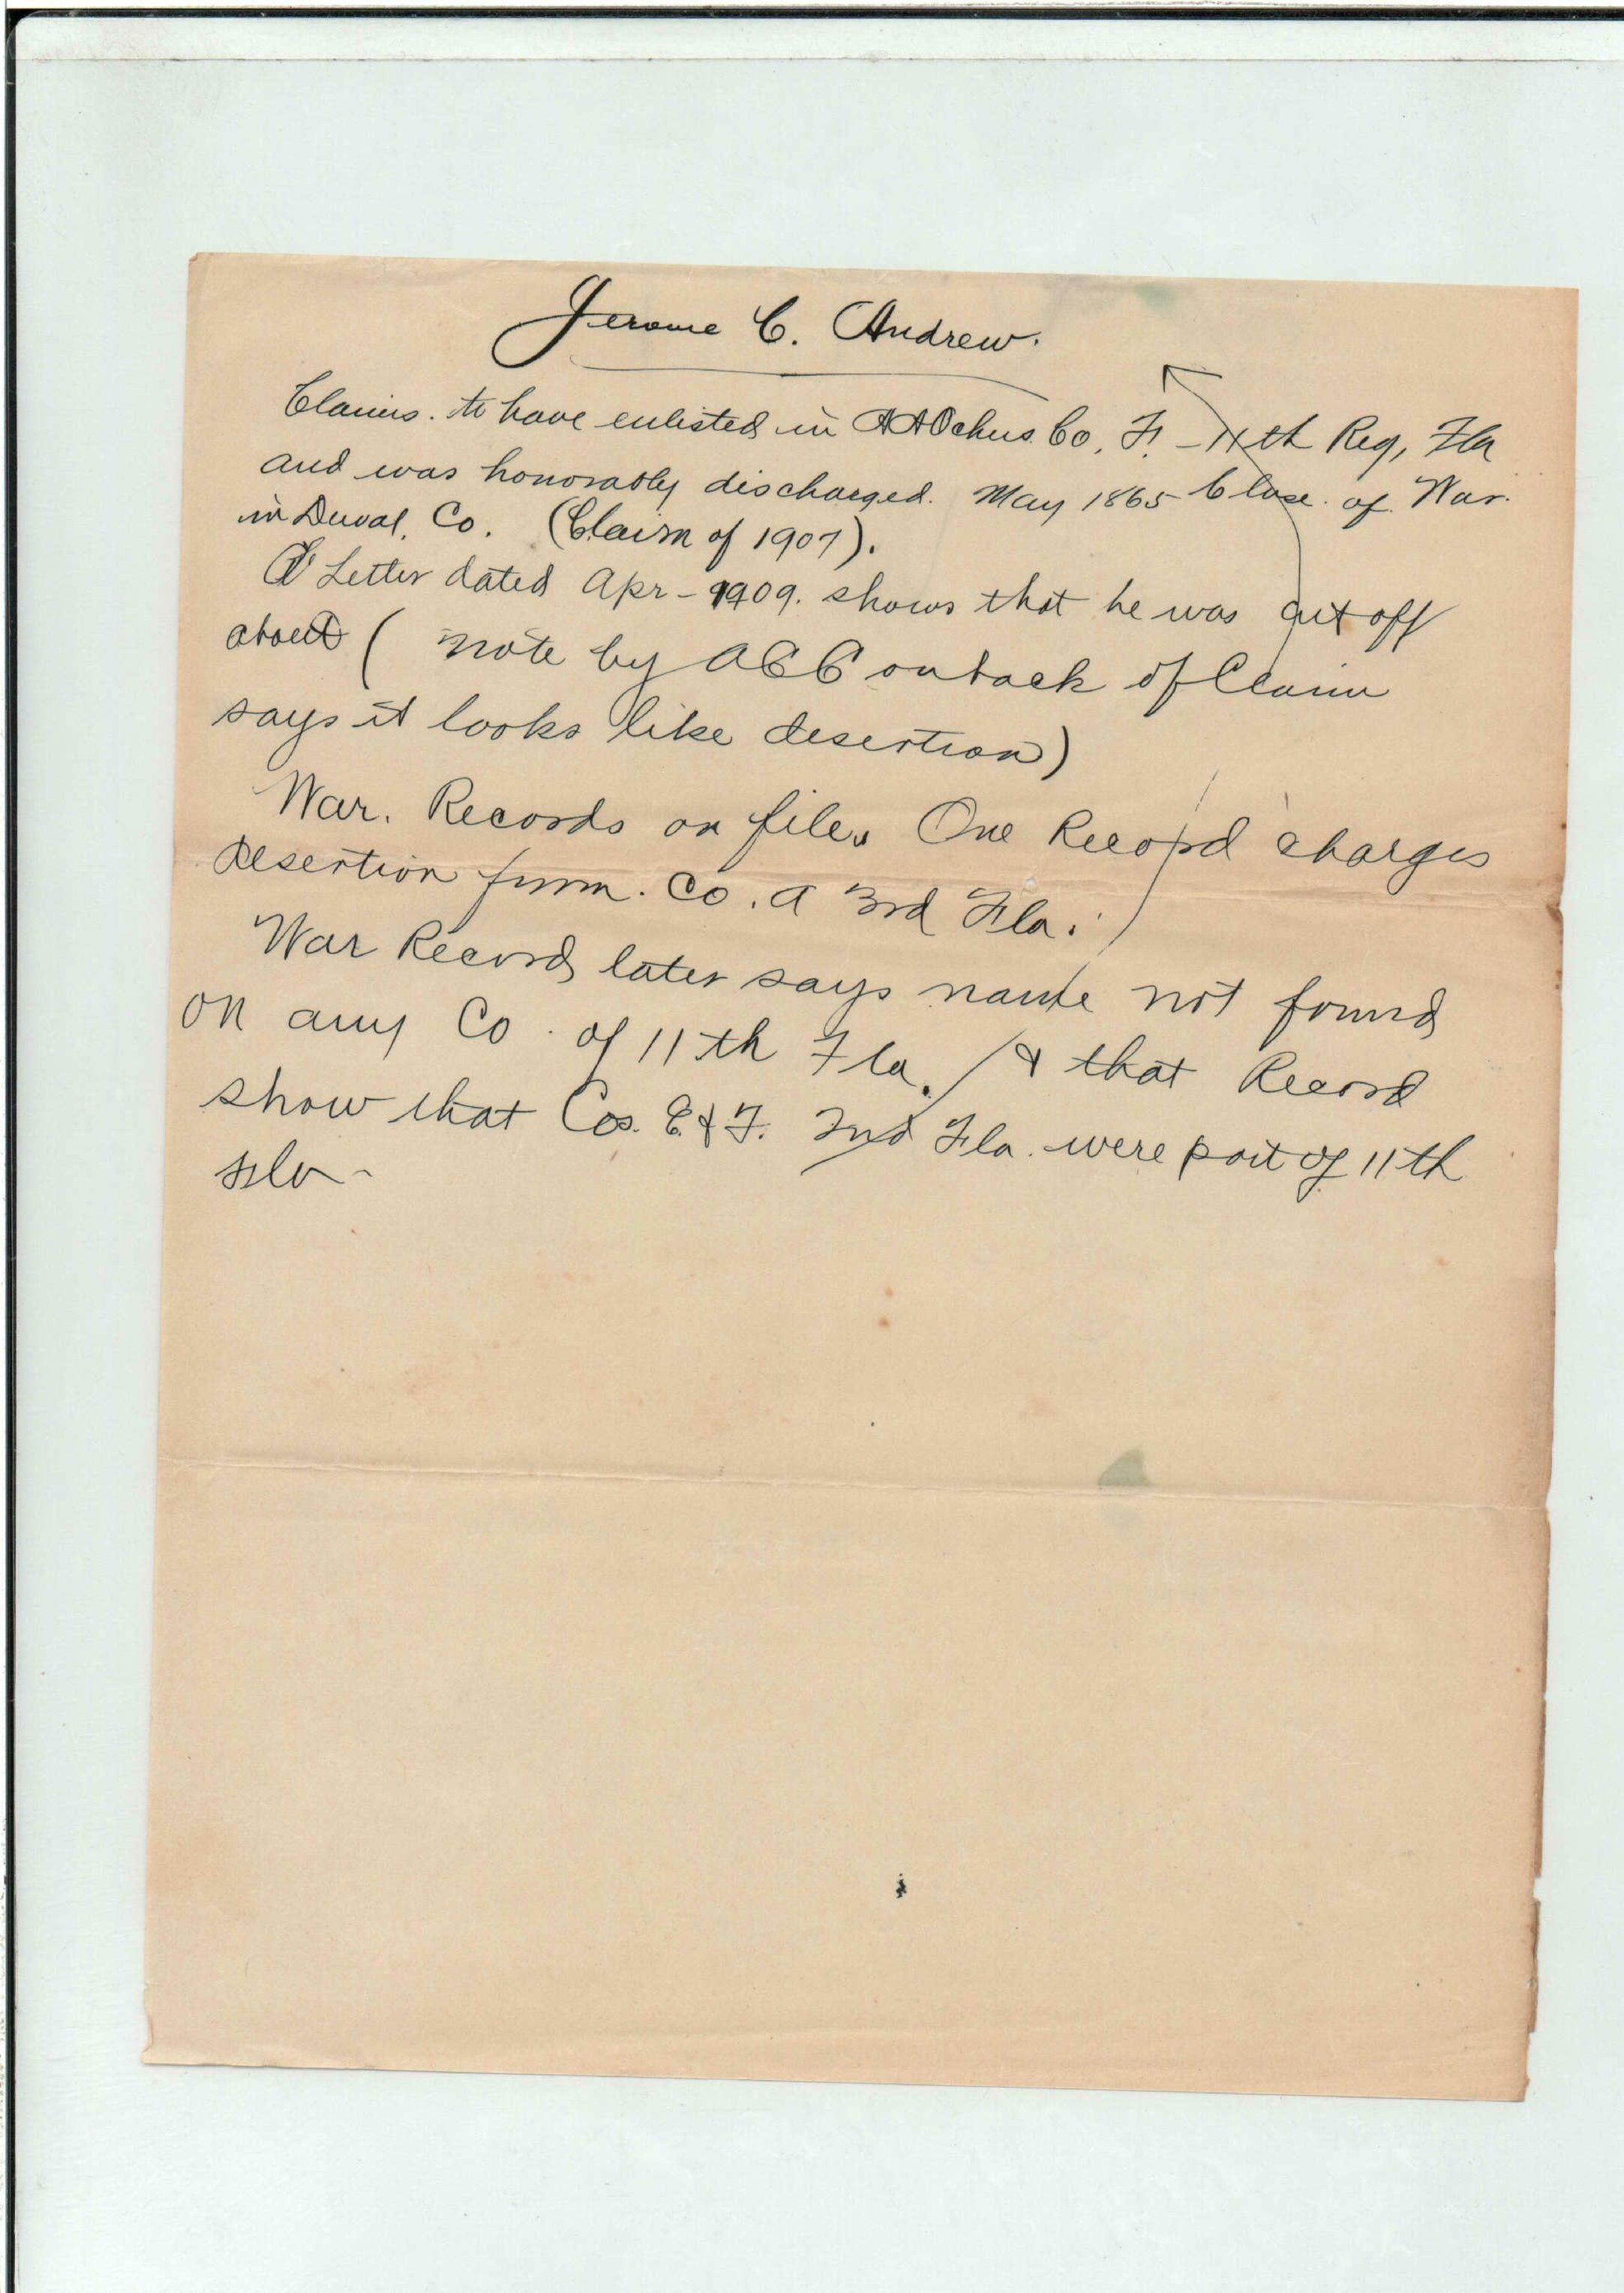 Jerome C. Andrew.
Claims. to have enlisted in A A Ochus. Co, F. - 11th Reg, Fla
and was honorably discharged. May 1865 - Close. of War.
in Duval, Co. (Claim of 1907).
A Letter dated Apr - 1909. shows that he was cut off
about ( note by ACC on back of Claim
says it looks like desertion)
War. Records on file. One Record charges
desertion from. Co. A 3rd Fla.
War Record later says name not found
on any Co. of 11th Fla. & that Record
show that Cos. E & F. 2nd Fla. were part of 11th
Fla -